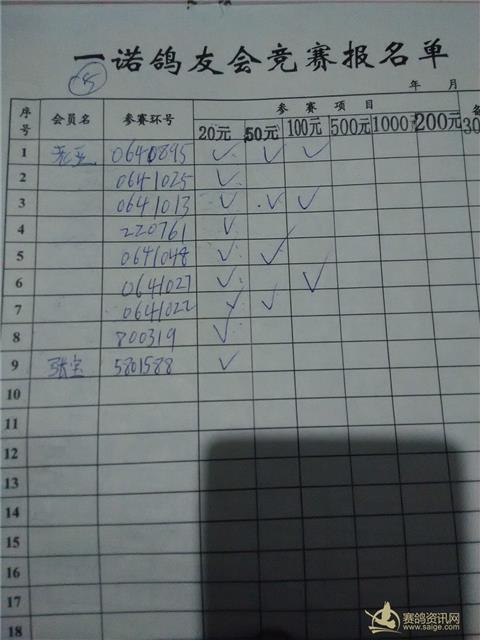 一诺鸽友会竞赛报名单
年 月
序号 会员名 参赛环号 参赛项目 备
20元 50元 100元 500元 1000元 200元 30
1 0640895 ✓ ✓ ✓
2 0641025 ✓
3 0641013 ✓ ✓ ✓
4 220761 ✓
5 0641048 ✓ ✓
6 0641027 ✓ ✓
7 0641022 ✓ ✓
8 800319 ✓
9 张宝 5801588 ✓
10
11
12
13
14
15
16
17
18
赛鸽资讯网
www.saige.com